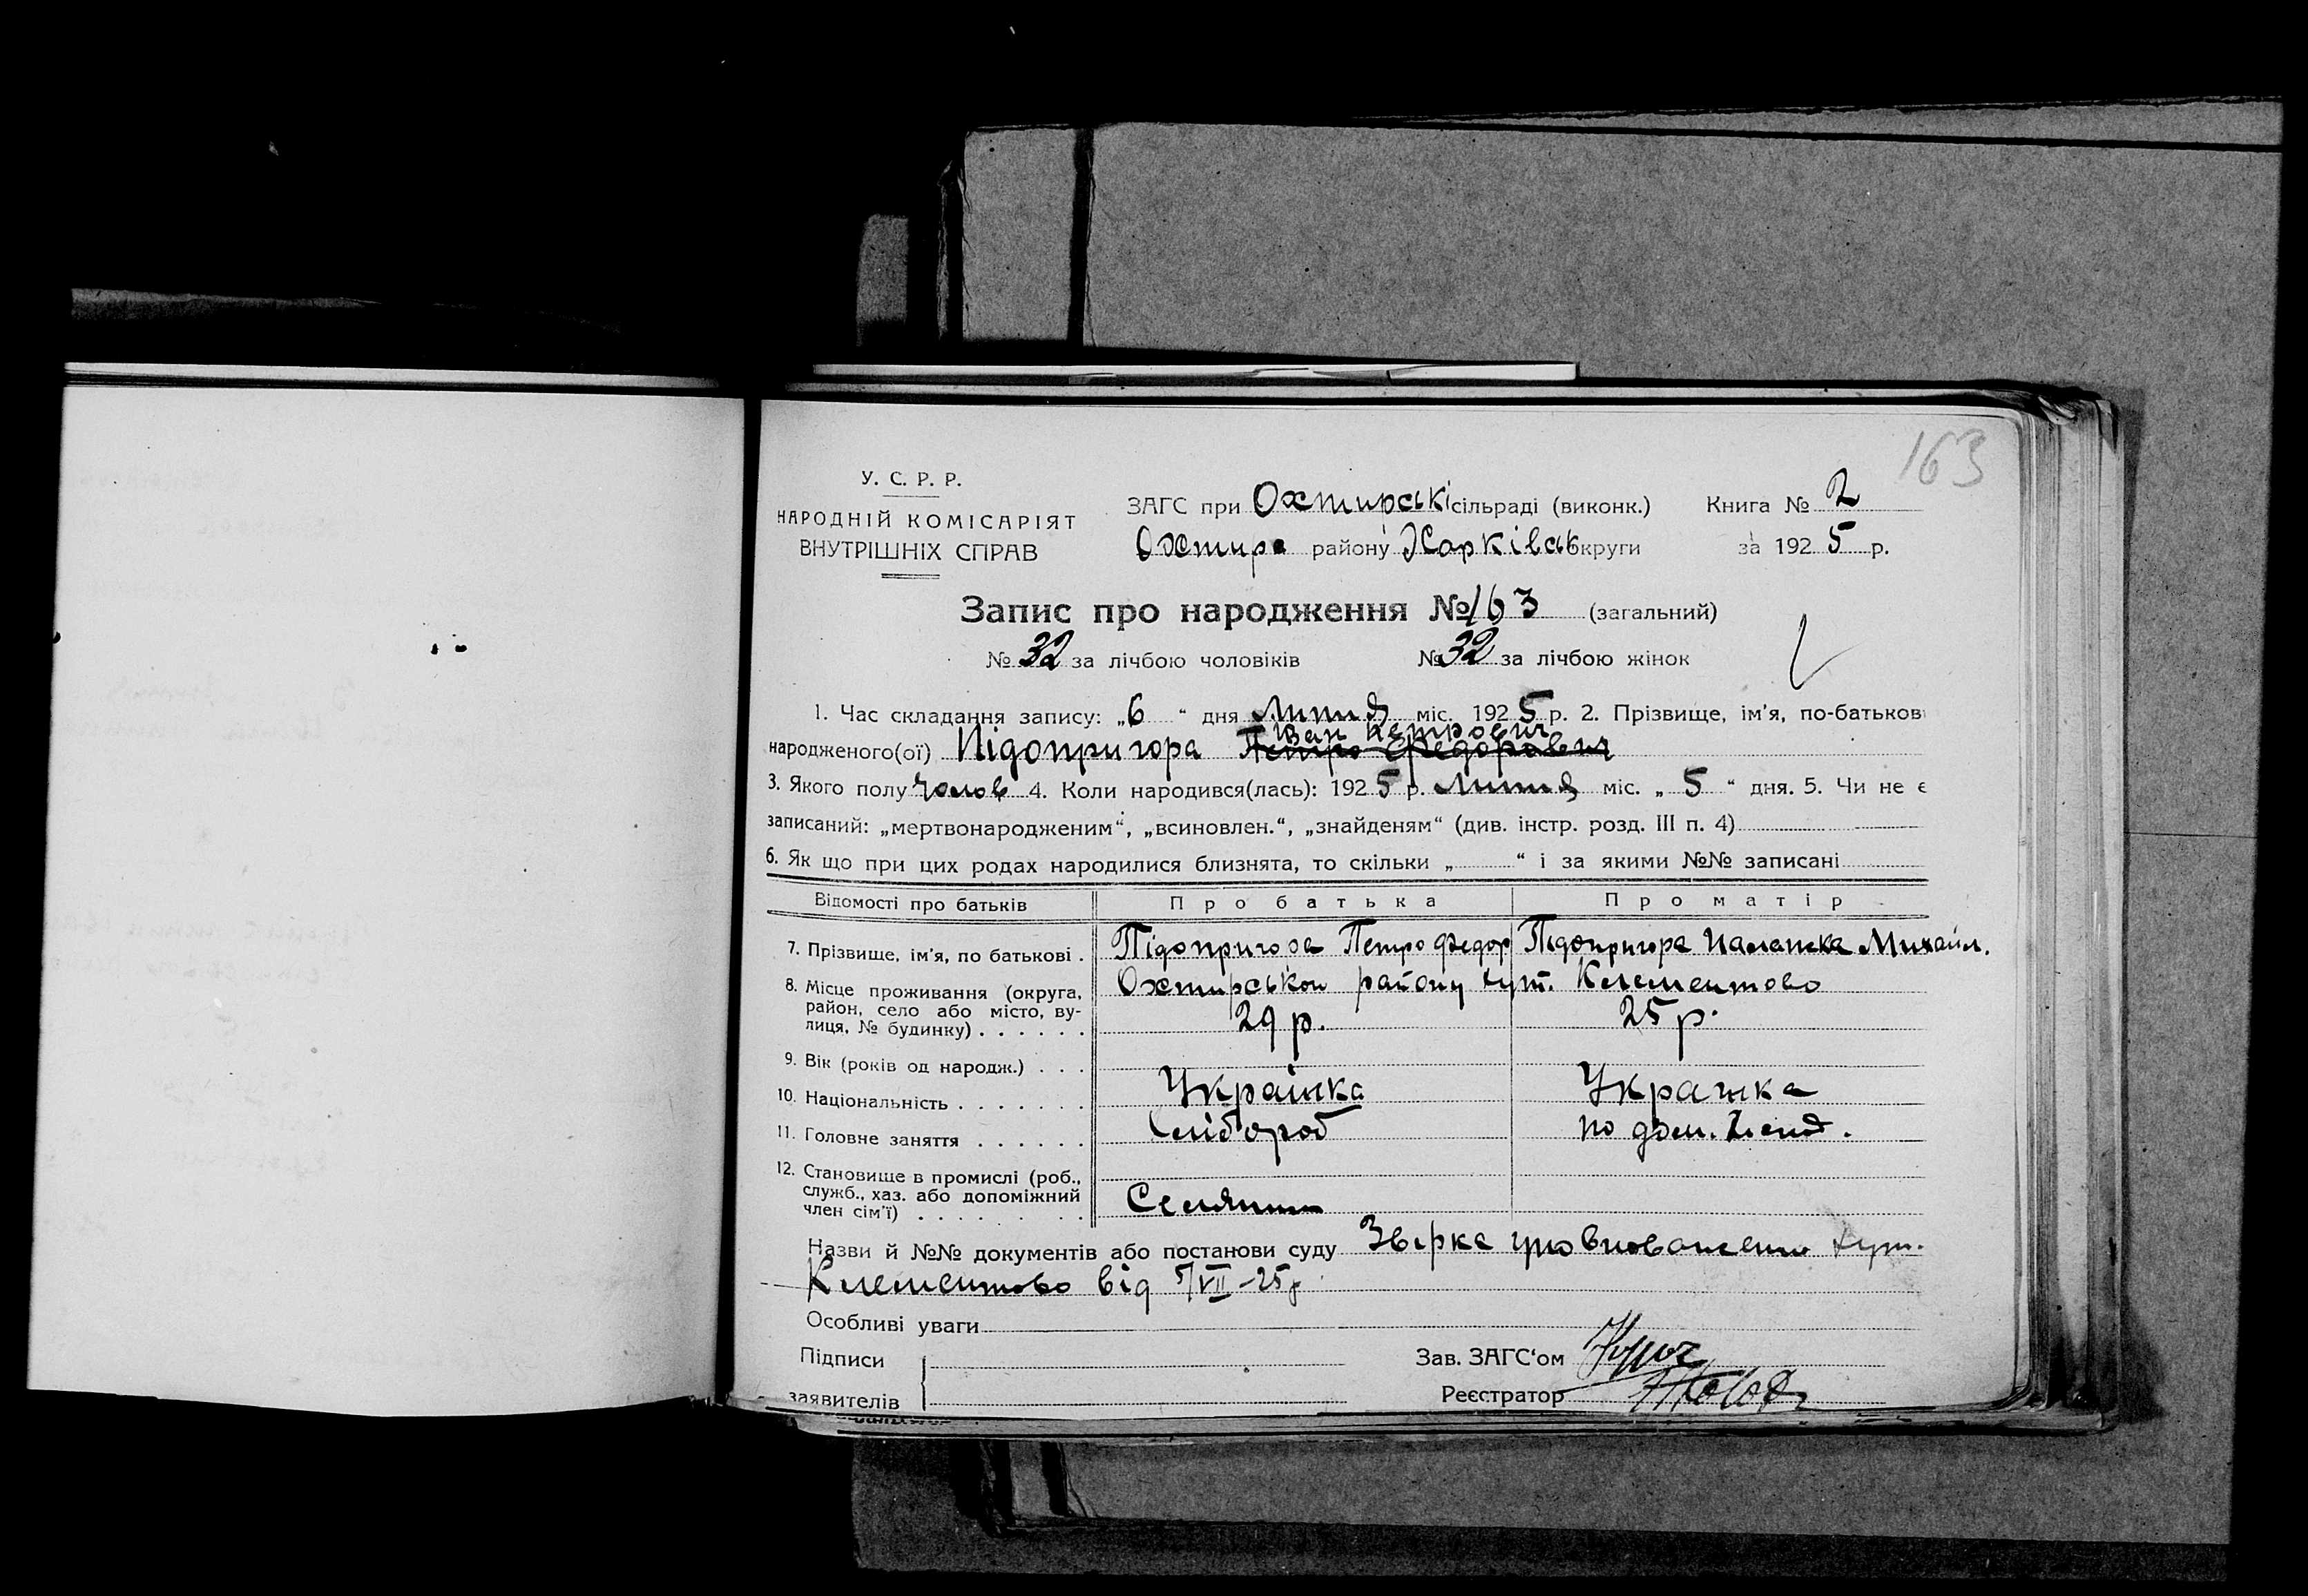 163
У. С. Р. Р.
НАРОДНІЙ КОМІСАРІЯТ
ВНУТРІШНІХ СПРАВ
ЗАГС при Охтирські сільраді (виконк.) Книга № 2
Охтир району Харківськ округи за 1925 р.
Запис про народження № 163 (загальний)
№ 32 за лічбою чоловіків № 32 за лічбою жінок
1. Час складання запису: „6“ дня Липня міс. 1925 р. 2. Прізвище, ім'я, по-батькові
Іван Петрович
народженого(ої) Підопригора Петро Федорович
3. Якого полу Чолов 4. Коли народився(лась): 1925 р. Липня міс. „5“ дня. 5. Чи не є
записаний: „мертвонародженим“, „всиновлен.“, „знайденям“ (див. інстр. розд. III п. 4)
6. Як що при цих родах народилися близнята, то скільки „ “ і за якими №№ записані
Відомості про батьків Про батька Про матір
7. Прізвище, ім'я, по батькові . Підопригора Петро Федор Підопригора Палашка Михайл.
8. Місце проживання (округа, район, село або місто, вулиця, № будинку) . . . . . . Охтирськои району хут. Клементово
29 р. 25 р.
9. Вік (років од народж.) . . .
10. Національність . . . . . . . Українка Українка
11. Головне заняття . . . . . . Хлібороб по дом.
12. Становище в промислі (роб., служб., хаз. або допоміжний член сім'ї) . . . . . . . . Селянин
Назви й №№ документів або постанови суду хут.
Клементово від 5/VII-25р
Особливі уваги
Підписи
заявителів
Зав. ЗАГС'ом
Реєстратор